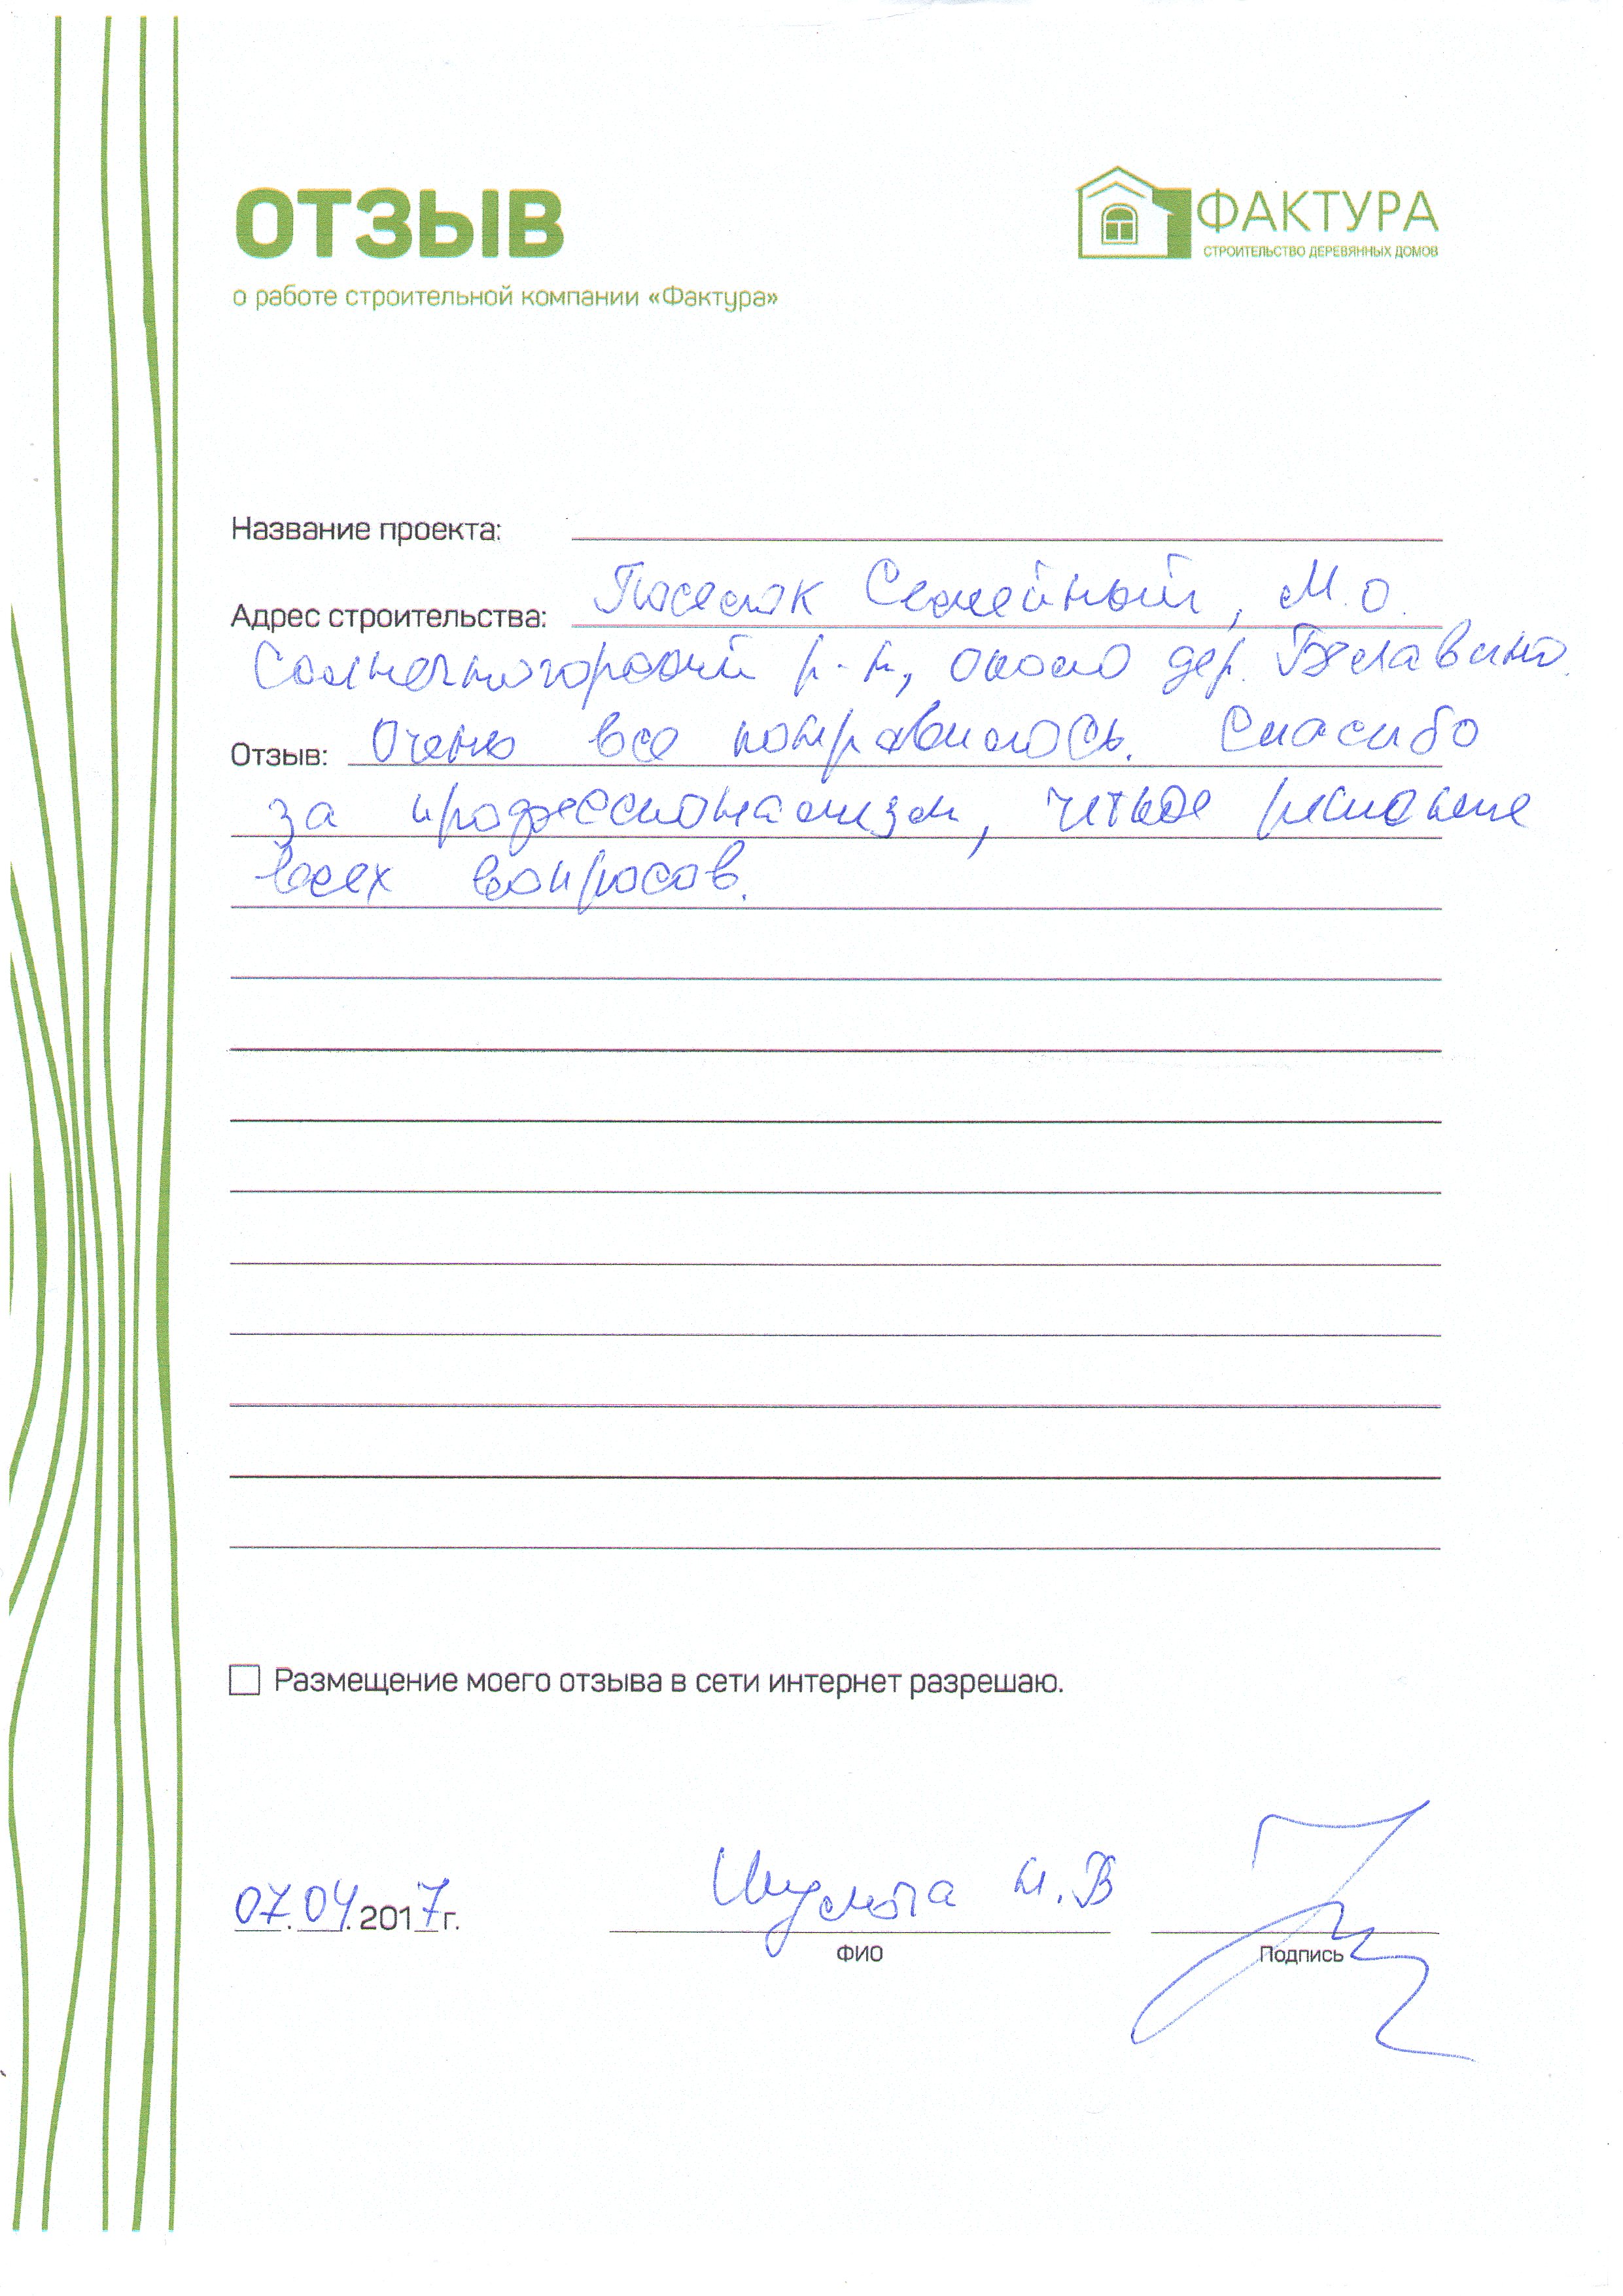 ОТЗЫВ
ФАКТУРА
СТРОИТЕЛЬСТВО ДЕРЕВЯННЫХ ДОМОВ
о работе строительной компании «Фактура»
Название проекта:
Адрес строительства: Поселок Семейный, М.О.
Солнечногорский р-н, около дер. Белавино.
Отзыв: Очень все понравилось. Спасибо
за профессионализм, четкое решение
всех вопросов.
Размещение моего отзыва в сети интернет разрешаю.
07.04.2017г.
И.В
ФИО
Подпись